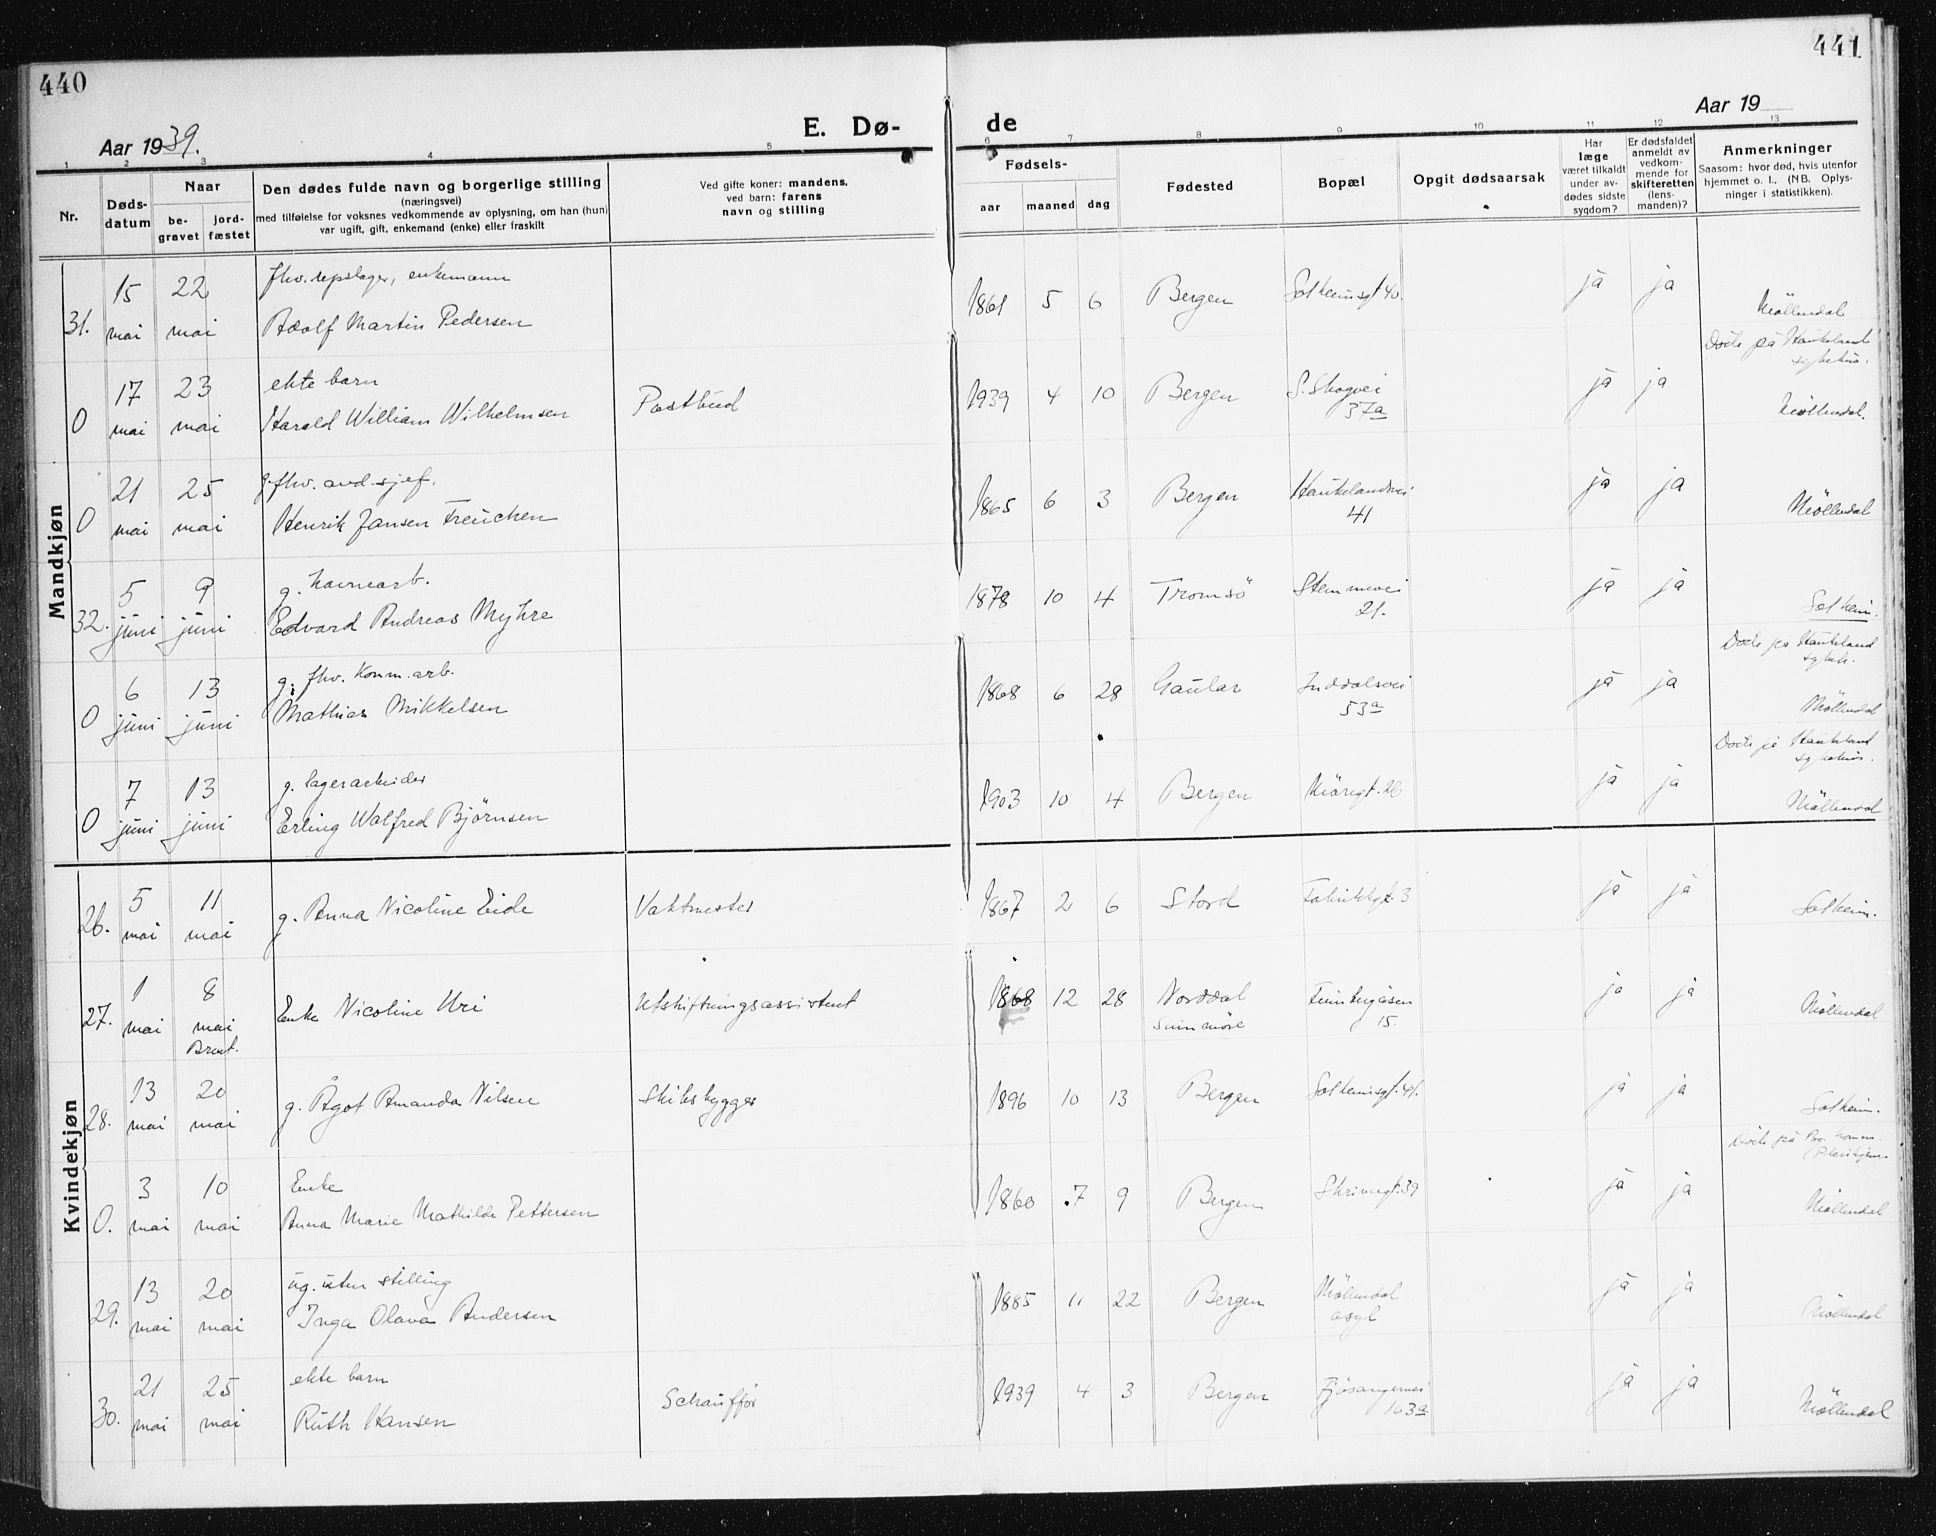 440
441
Aar 1939.
E. Dø-
de
Aar 19
1 2 3 4 5 6 7 8 9 10 11 12 13
Nr.
Døds-
datum
Naar
be-
gravet
jord-
fæstet
Den dødes fulde navn og borgerlige stilling
(næringsvei)
med tilføielse for voksnes vedkommende av oplysning, om han (hun)
var ugift, gift, enkemand (enke) eller fraskilt
Ved gifte koner: mandens,
ved barn: farens
navn og stilling
Fødsels-
aar maaned dag
Fødested
Bopæl
Opgit dødsaarsak
Har
læge
været tilkaldt
under av-
dødes sidste
sygdom?
Er dødsfaldet
anmeldt av
vedkom-
mende for
skifteretten
(lens-
manden)?
Anmerkninger
Saasom: hvor død, hvis utenfor
hjemmet o. l., (NB. Oplys-
ninger i statistikken).
Mandkjøn
31. 15 mai 22 mai fhv. repslager, enkemann
Adolf Martin Pedersen
1861 5 6 Bergen Solheimsgt. 40. ja ja Møllendal
Døde på Haukeland
sykehus.
0 17 mai 23 mai ekte barn
Harald William Wilhelmsen Postbud
1939 4 10 Bergen S. Skogvei
37a ja ja Møllendal.
0 21 mai 25 mai g. fhv. avd. sjef.
Henrik Jansen Freuchen
1865 6 3 Bergen Haukelandsvei
41 ja ja Møllendal
32. 5 juni 9 juni g. havnearb.
Edvard Andreas Myhre
1878 10 4 Tromsö Stemmevei
21. ja ja Solheim.
Døde på Haukeland
sykeh.
0 6 juni 13 juni g. fhv. komm. arb.
Mathias Mikkelsen
1868 6 28 Gaular Inddalsvei
53a ja ja Møllendal
Døde på Haukeland
sykehus.
0 7 juni 13 juni g. lagerarbeider
Erling Walfred Bjørnsen
1903 10 4 Bergen 26 ja ja Møllendal
Kvindekjøn
26. 5 mai 11 mai g. Anna Nicoline Eide Vaktmester
1867 2 6 Stord Fabrikkgt. 3 ja ja Solheim.
27. 1 mai 8 mai
Enke Nicoline Uri Utskiftningsassistent
1868 12 28 Norddal
Sunnmøre 15. ja ja Møllendal
28. 13 mai 20 mai g. Ågot Amanda Nilsen Skibsbygger
1896 10 13 Bergen Solheimsgt. 41. ja ja Solheim.
Døde på
0. 3 mai 10 mai Enke
Anna Marie Mathilde Pettersen
1860 7 9 Bergen Skrivergt. 39 ja ja Møllendal
29. 13 mai 20 mai ug. uten stilling
Inga Olava Andersen
1885 11 22 Bergen Møllendal
asyl ja ja Møllendal
30. 21 mai 25 mai ekte barn
Ruth Hansen Schauffør
1939 4 3 Bergen Fjøsangervei
163a ja ja Møllendal